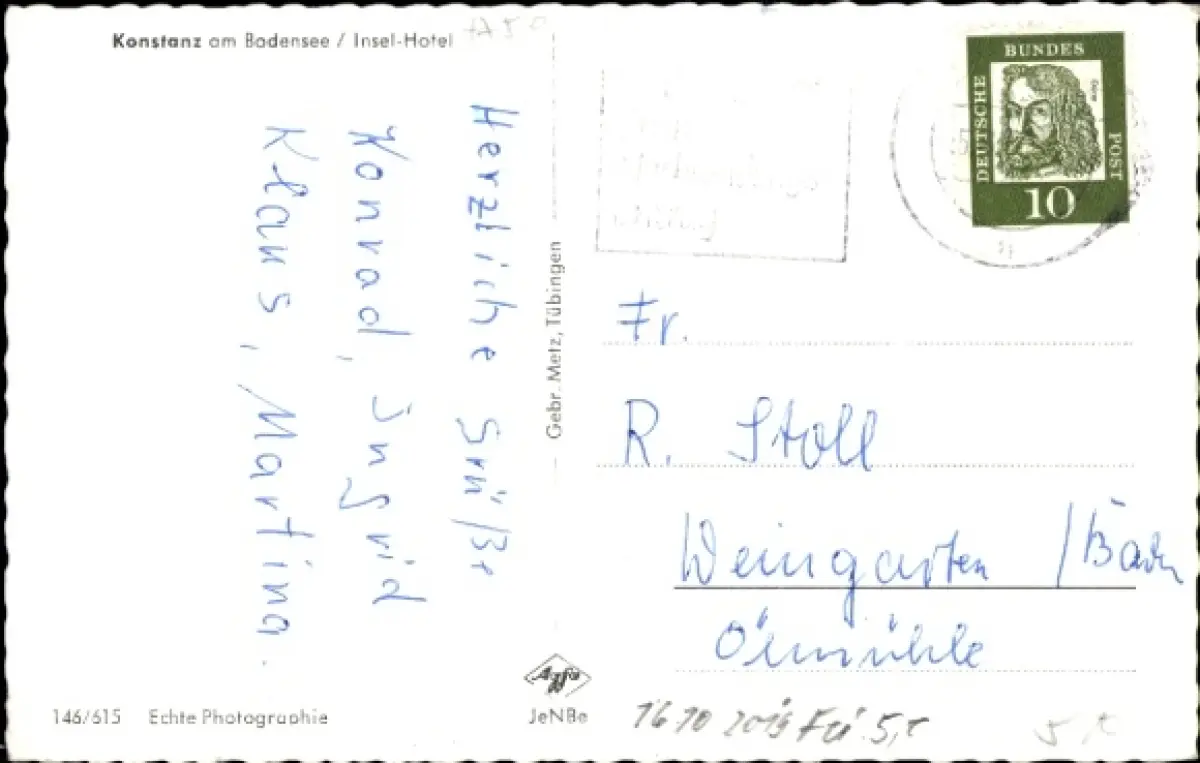 Konstanz am Bodensee / Insel-Hotel
Herzliche Grüße
Konrad, Ingrid
Klaus, Martina.
Gebr. Metz, Tübingen
DEUTSCHE BUNDES POST
10
Fr.
R. Stoll
Weingarten / Baden
Ölmühle
Agfa
JeNBe
146/615 Echte Photographie
16 10 2019 Fü 5,-